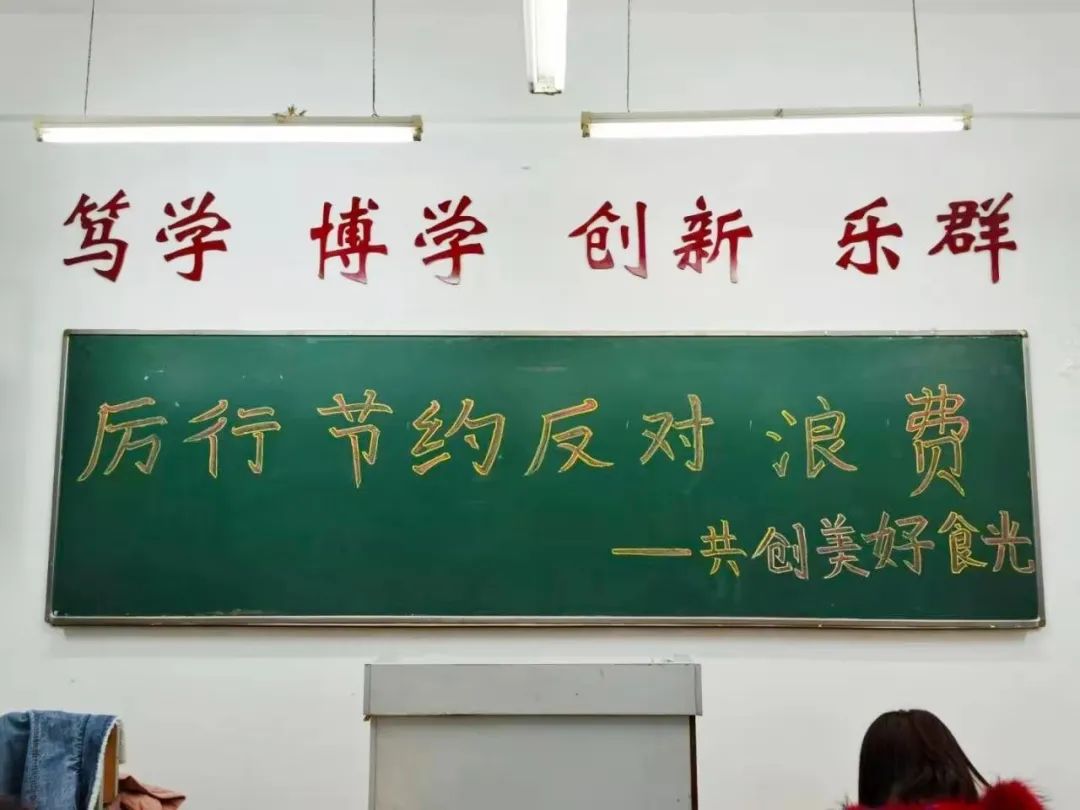 笃学 博学 创新 乐群
厉行节约反对浪费
——共创美好食光